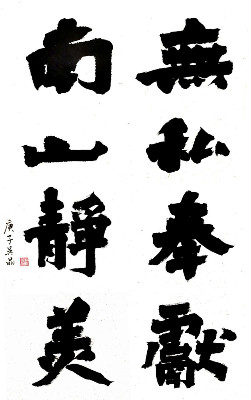 無私奉獻
南山靜美
庚子